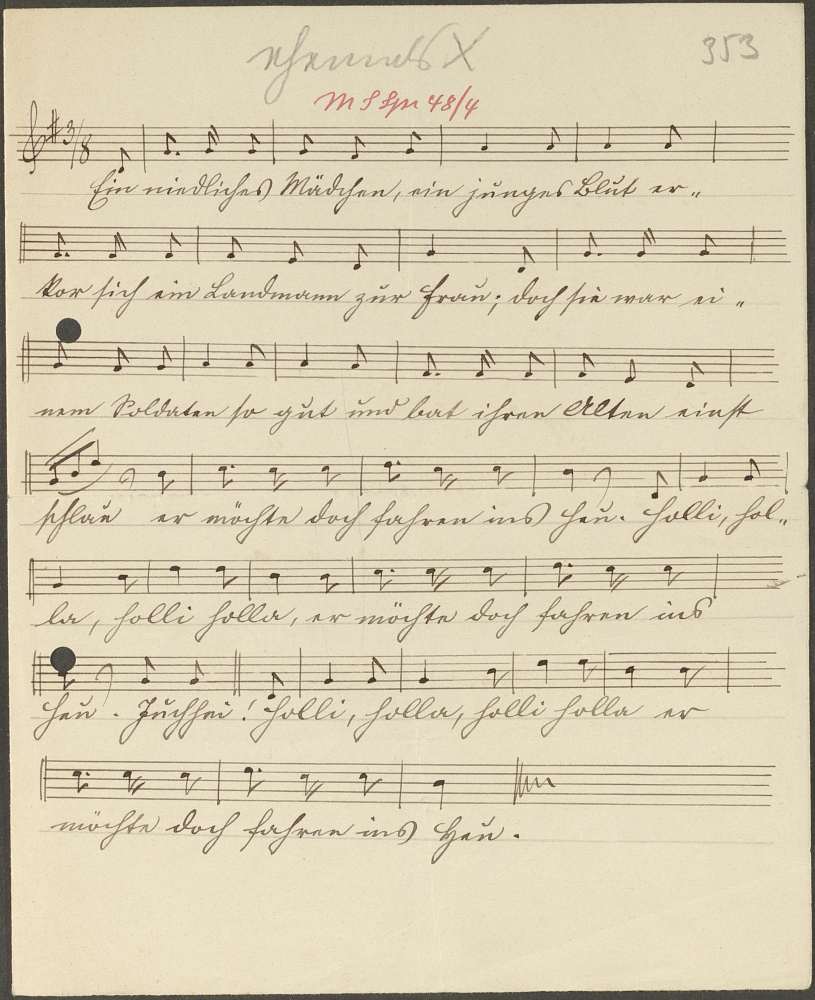 353
M S Spr 48/4
3/8
Ein niedliches Mädchen, ein junges Blut er„
kor sich ein Landmann zur Frau; doch sie war ei„
nem Soldaten so gut und bat ihren Alten einst
schlau er möchte doch fahren ins Heu. Holli, hol„
la, holli holla, er möchte doch fahren ins
Heu. Juchhei! Holli, holla, holli holla er
möchte doch fahren ins Heu.